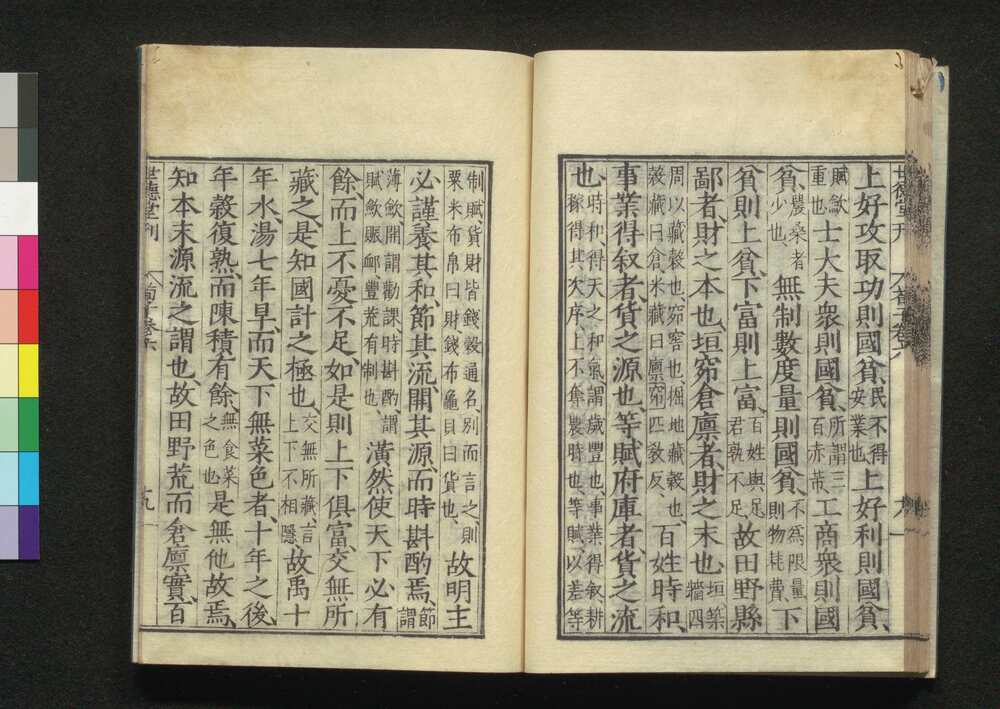 上好攻取功則國貧民不得安業也上好利則國貧
賦斂重也士大夫衆則國貧所謂三百赤芾工商衆則國
貧農桑者少也無制數度量則國貧不爲限量則物耗費下
貧則上貧下富則上富百姓與足君孰不足故田野縣
鄙者財之本也垣窌倉廩者財之末也垣築牆四
周以藏穀也窌窖也掘地藏穀也穀藏曰倉米藏曰廩窌匹敎反百姓時和
事業得叙者貨之源也等賦府庫者貨之流
也時和得天之和氣謂歲豐也事業得叙耕稼得其次序上不奪農時也等賦以差等
世德堂刊
荀子卷六
制賦貨財皆錢穀通名別而言之則粟米布帛曰財錢布龜貝曰貨也故明主
必謹養其和節其流開其源而時斟酌焉節謂
薄斂開謂勸課時斟酌謂賦斂賑䘏豐荒有制也潢然使天下必有
餘而上不憂不足如是則上下俱富交無所
藏之是知國計之極也交無所藏言上下不相隱故禹十
年水湯七年旱而天下無菜色者十年之後
年穀復熟而陳積有餘無食菜之色也是無他故焉
知本末源流之謂也故田野荒而倉廩實百
世德堂刊
荀子卷六
十九